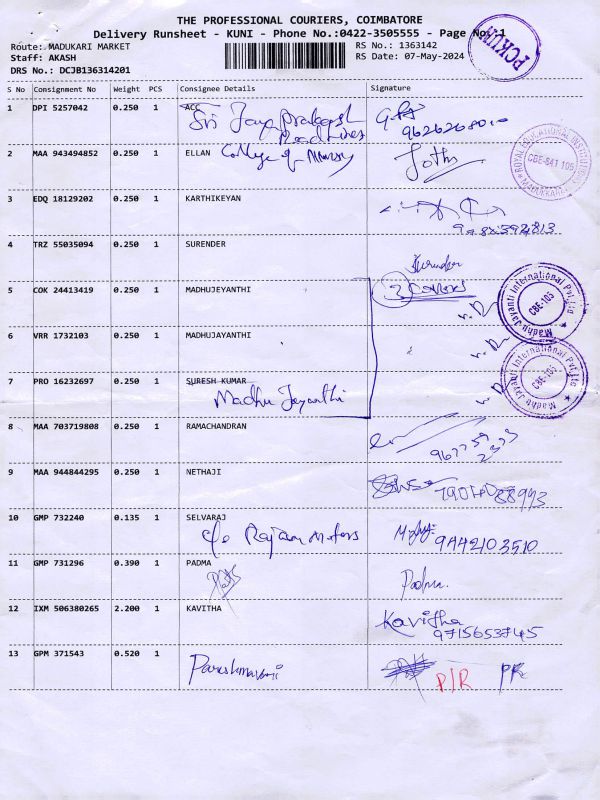 THE PROFESSIONAL COURIERS, COIMBATORE
Delivery Runsheet - KUNI - Phone No.:0422-3505555 - Page No.:1
PCKUM
Route: MADUKARI MARKET
RS No.: 1363142
Staff: AKASH
RS Date: 07-May-2024
DRS No.: DCJB136314201
S No Consignment No Weight PCS Consignee Details Signature
1 DPI 5257042 0.250 1 ACC
Sri Jaya Prakash
Road Lines
9626268010
2 MAA 943494852 0.250 1 ELLAN College of Nursing Jothi
ROYAL EDUCATIONAL INSTITUTIONS
CBE-641 105
MADUKKARAI
3 EDQ 18129202 0.250 1 KARTHIKEYAN
4 TRZ 55035094 0.250 1 SURENDER
Surender
5 COK 24413419 0.250 1 MADHUJEYANTHI 3 Covers
Madhu Jayanti International Pvt. Ltd
CBE-105
6 VRR 1732103 0.250 1 MADHUJAYANTHI
Madhu Jayanti International Pvt. Ltd
CBE-105
7 PRO 16232697 0.250 1 SURESH KUMAR
Madhu Jayanthi
8 MAA 703719808 0.250 1 RAMACHANDRAN
9 MAA 944844295 0.250 1 NETHAJI
10 GMP 732240 0.135 1 SELVARAJ
c/o Rajam Motors
9442103510
11 GMP 731296 0.390 1 PADMA
Padma.
12 IXM 506380265 2.200 1 KAVITHA Kavitha
9715653745
13 GPM 371543 0.520 1
P/R PR